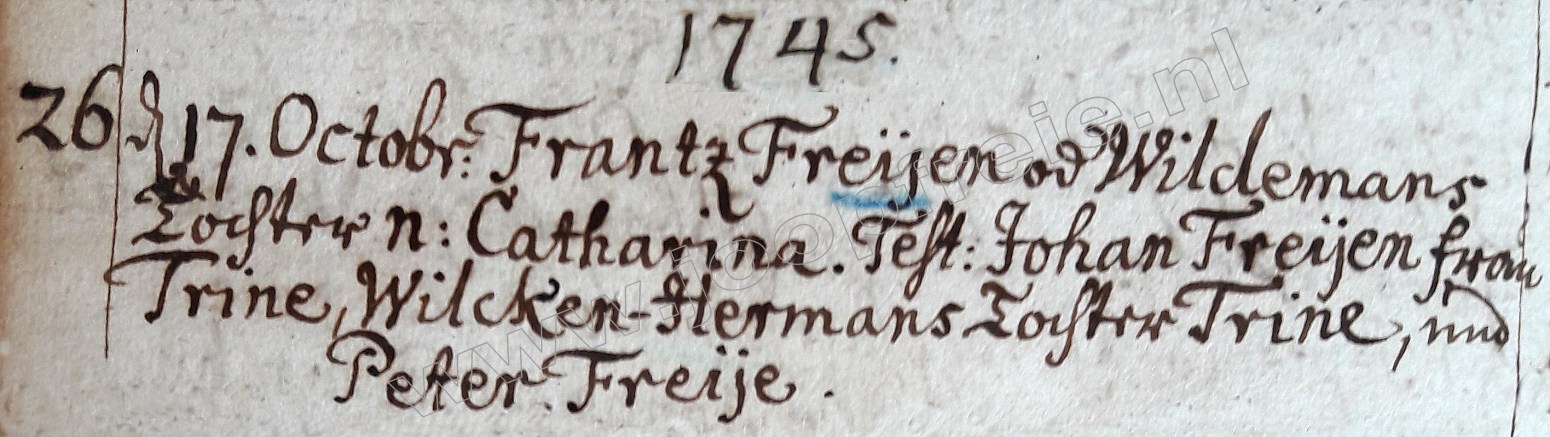 1745.
26 d 17. Octobr: Frantz Freijen od Wildemans
Tochter n: Catharina. Test: Johan Freijen frau
Trine, Wilcken-Hermans Tochter Trine, und
Peter Freije.
www.joopfreie.nl